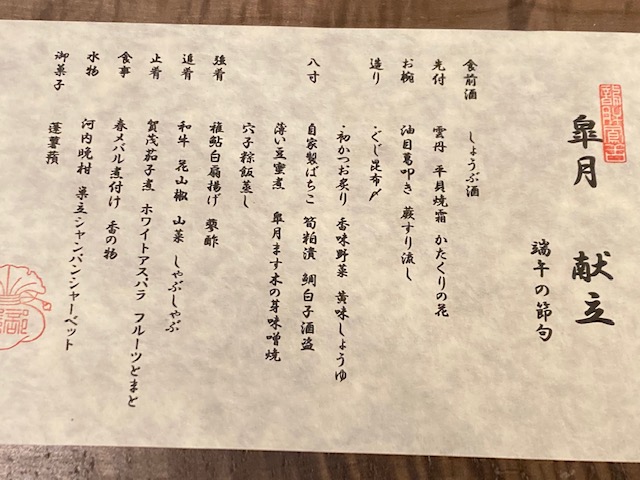 皐月 献立
端午の節句
食前酒 しょうぶ酒
先付 雲丹 平貝焼霜 かたくりの花
お椀 油目葛叩き 蕨すり流し
造り ・ぐじ昆布〆
・初かつお炙り 香味野菜 黄味しょうゆ
八寸 自家製ばちこ 筍粕漬 鯛白子酒盗
薄い豆蜜煮 皐月ます木の芽味噌焼
穴子粽飯蒸し
強肴 稚鮎白扇揚げ 蓼酢
追肴 和牛 花山椒 山菜 しゃぶしゃぶ
止肴 賀茂茄子煮 ホワイトアスパラ フルーツとまと
食事 春メバル煮付け 香の物
水物 河内晩柑 巣立シャンパンシャーベット
御菓子 蓬蘽蕷